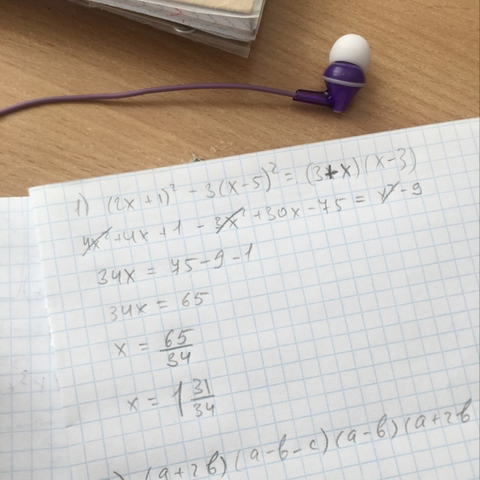 1) (2x+1)² - 3(x-5)² = (3+x)(x-3)
4x² + 4x + 1 - 3x² + 30x - 75 = x² - 9
34x = 75 - 9 - 1
34x = 65
x = 65/34
x = 1 31/34
(a+2b)(a-b-c)(a-b)(a+2b